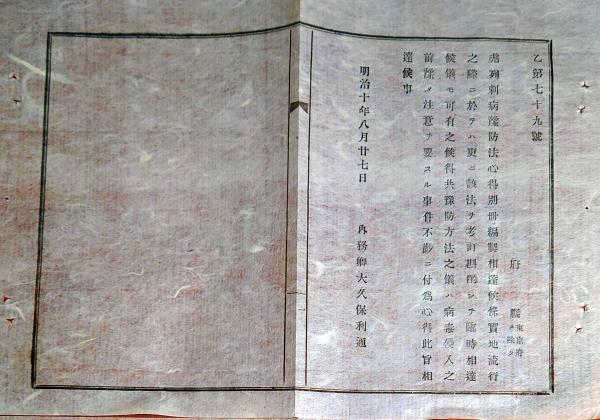 乙第七十九號
府縣 東京府ヲ除ク
虎列刺病豫防法心得別冊編製相達候條實地流行
之際ニ於テハ更ニ該法ヲ考訂斟酌シテ臨時相達
候儀モ可有之候得共豫防方法之儀ハ病毒侵入之
前豫メ注意ヲ要スル事件不尠ニ付爲心得此旨相
達候事
明治十年八月廿七日
內務卿大久保利通